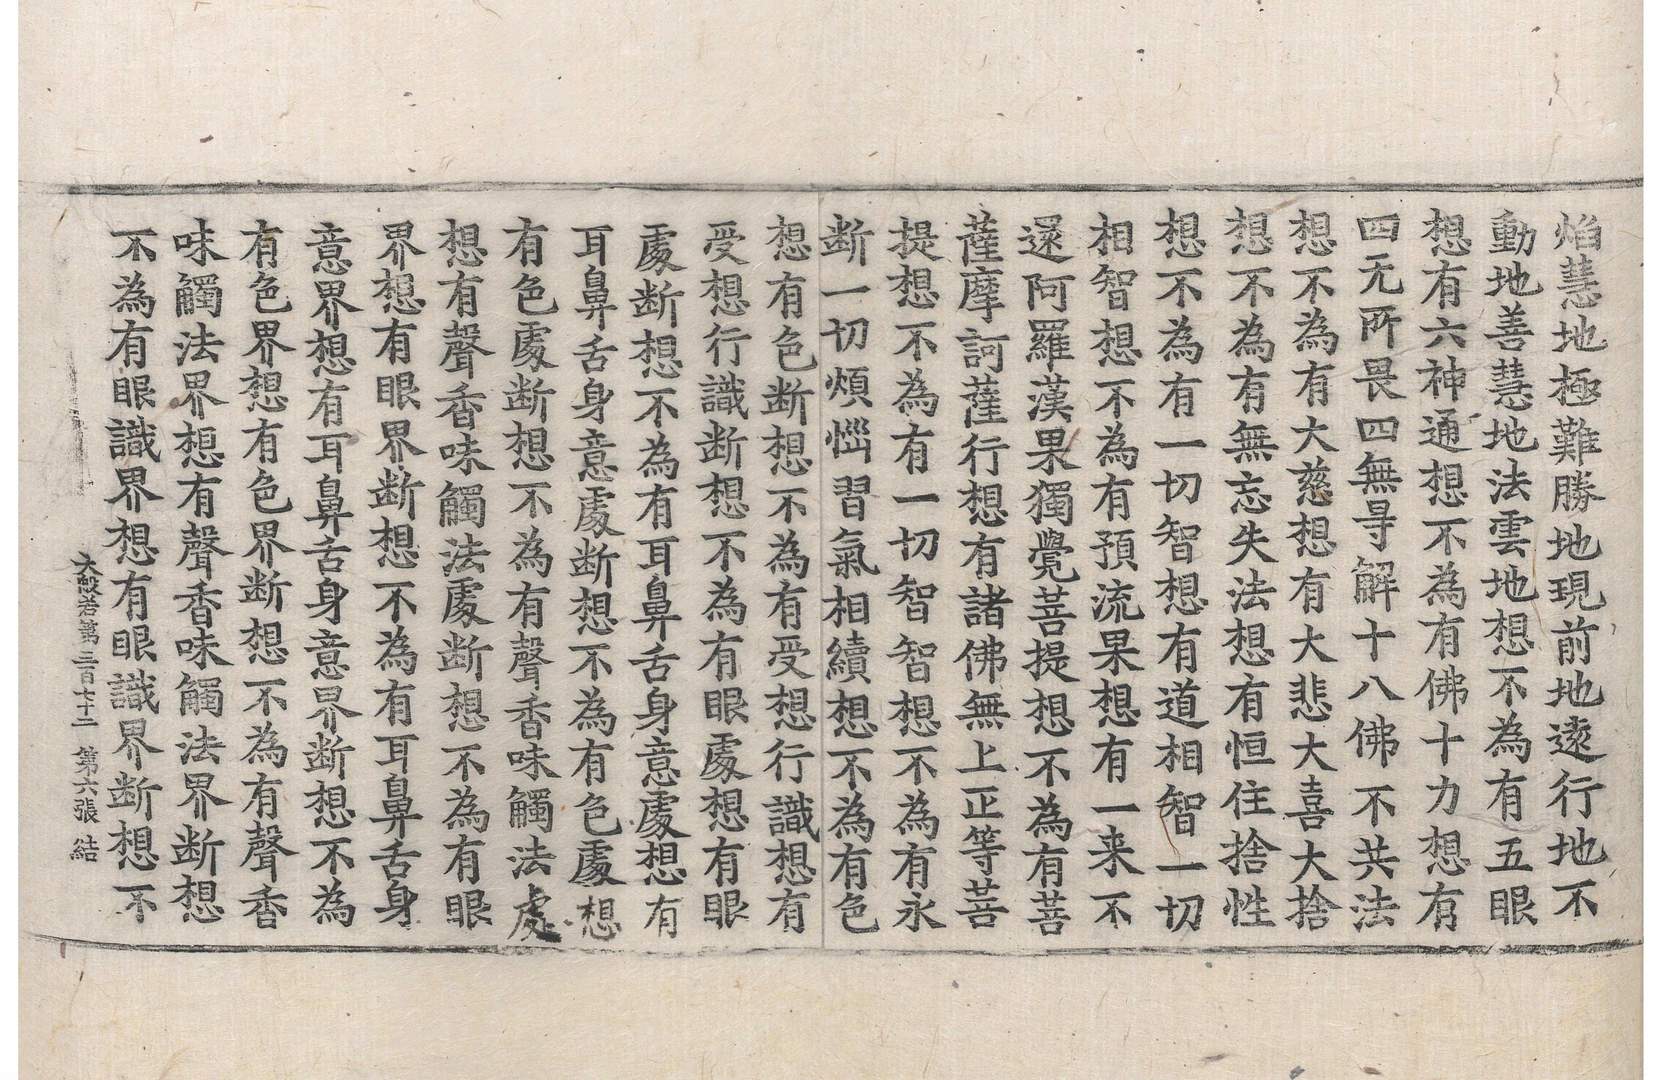 焰慧地極難勝地現前地遠行地不
動地善慧地法雲地想不為有五眼
想有六神通想不為有佛十力想有
四无所畏四無㝵解十八佛不共法
想不為有大慈想有大悲大喜大捨
想不為有無忘失法想有恒住捨性
想不為有一切智想有道相智一切
相智想不為有預流果想有一来不
還阿羅漢果獨覺菩提想不為有菩
薩摩訶薩行想有諸佛無上正等菩
提想不為有一切智智想不為有永
断一切煩惱習氣相續想不為有色
想有色断想不為有受想行識想有
受想行識断想不為有眼處想有眼
處断想不為有耳鼻舌身意處想有
耳鼻舌身意處断想不為有色處想
有色處断想不為有聲香味觸法處
想有聲香味觸法處断想不為有眼
界想有眼界断想不為有耳鼻舌身
意界想有耳鼻舌身意界断想不為
有色界想有色界断想不為有聲香
味觸法界想有聲香味觸法界断想
不為有眼識界想有眼識界断想不
大般若第三百七十二 第六張 結